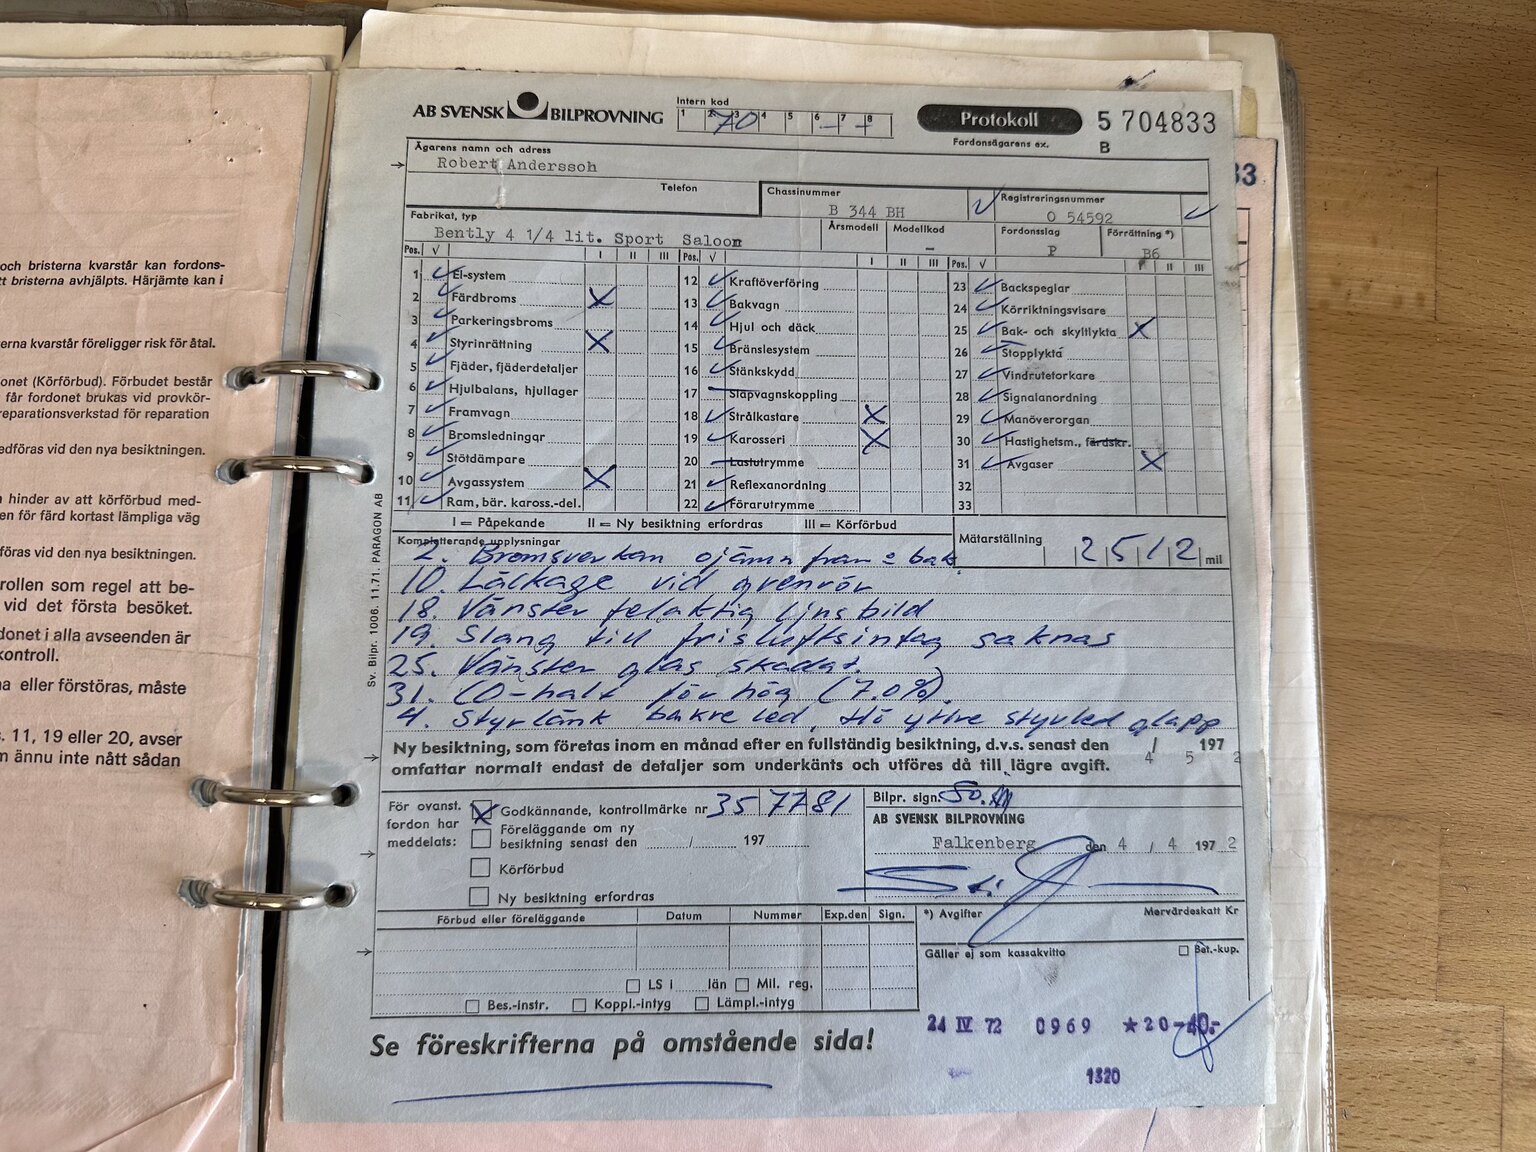 och bristerna kvarstår kan fordons-
tt bristerna avhjälpts. Härjämte kan i
erna kvarstår föreligger risk för åtal.
onet (Körförbud). Förbudet består
får fordonet brukas vid provkör-
reparationsverkstad för reparation
edföras vid den nya besiktningen.
hinder av att körförbud med-
en för färd kortast lämpliga väg
föras vid den nya besiktningen.
rollen som regel att be-
vid det första besöket.
donet i alla avseenden är
kontroll.
na eller förstöras, måste
s. 11, 19 eller 20, avser
m ännu inte nått sådan
AB SVENSK BILPROVNING
Intern kod
1 2 3 4 5 6 7 8
70
Protokoll
Fordonsägarens ex.
5 704833
B
33
Ägarens namn och adress
Robert Anderssoh
Telefon
Chassinummer
B 344 BH
Registreringsnummer
O 54592
Fabrikat, typ
Bently 4 1/4 lit. Sport Saloon
Årsmodell
Modellkod
-
Fordonsslag
P
Förrättning *)
B6
Pos. √ I II III Pos. √ I II III Pos. √ I II III
1 El-system
2 Färdbroms X
3 Parkeringsbroms
4 Styrinrättning X
5 Fjäder, fjäderdetaljer
6 Hjulbalans, hjullager
7 Framvagn
8 Bromsledningar
9 Stötdämpare
10 Avgassystem X
11 Ram, bär. kaross.-del.
12 Kraftöverföring
13 Bakvagn
14 Hjul och däck
15 Bränslesystem
16 Stänkskydd
17 Släpvagnskoppling
18 Strålkastare X
19 Karosseri X
20 Lastutrymme
21 Reflexanordning
22 Förarutrymme
23 Backspeglar
24 Körriktningsvisare
25 Bak- och skyltlykta X
26 Stopplykta
27 Vindrutetorkare
28 Signalanordning
29 Manöverorgan
30 Hastighetsm., färdskr.
31 Avgaser X
32
33
I = Påpekande II = Ny besiktning erfordras III = Körförbud
Mätarställning
2512 mil
Kompletterande upplysningar
2. Bromsverkan ojämn fram o bak
10. Läckage vid grenrör
18. Vänster felaktig ljusbild
19. Slang till friskluftsintag saknas
25. Vänster glas skadat.
31. CO-halt för hög (7.0%).
4. Styrlänk bakre led, Hö yttre styrled glapp
Sv. Bilpr. 1006. 11.71. PARAGON AB
Ny besiktning, som företas inom en månad efter en fullständig besiktning, d.v.s. senast den 4 / 5 1972
omfattar normalt endast de detaljer som underkänts och utföres då till lägre avgift.
För ovanst.
fordon har
meddelats:
X Godkännande, kontrollmärke nr 357781
Föreläggande om ny
besiktning senast den / 197
Körförbud
Ny besiktning erfordras
Bilpr. sign.
AB SVENSK BILPROVNING
Falkenberg den 4 / 4 1972
Förbud eller föreläggande Datum Nummer Exp.den Sign.
LS i län Mil. reg.
Bes.-instr. Koppl.-intyg Lämpl.-intyg
*) Avgifter
Mervärdeskatt Kr
Gäller ej som kassakvitto
Bet.-kup.
24 IV 72 0969 ★20-40.-
1320
Se föreskrifterna på omstående sida!